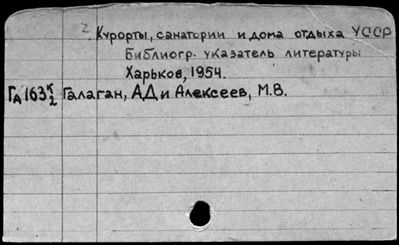 2. Курорты, санатории и дома отдыха УССР
Библиогр. указатель литературы
Харьков, 1954.
ГА 163 К/2 Галаган, А.Д и Алексеев, М.В.